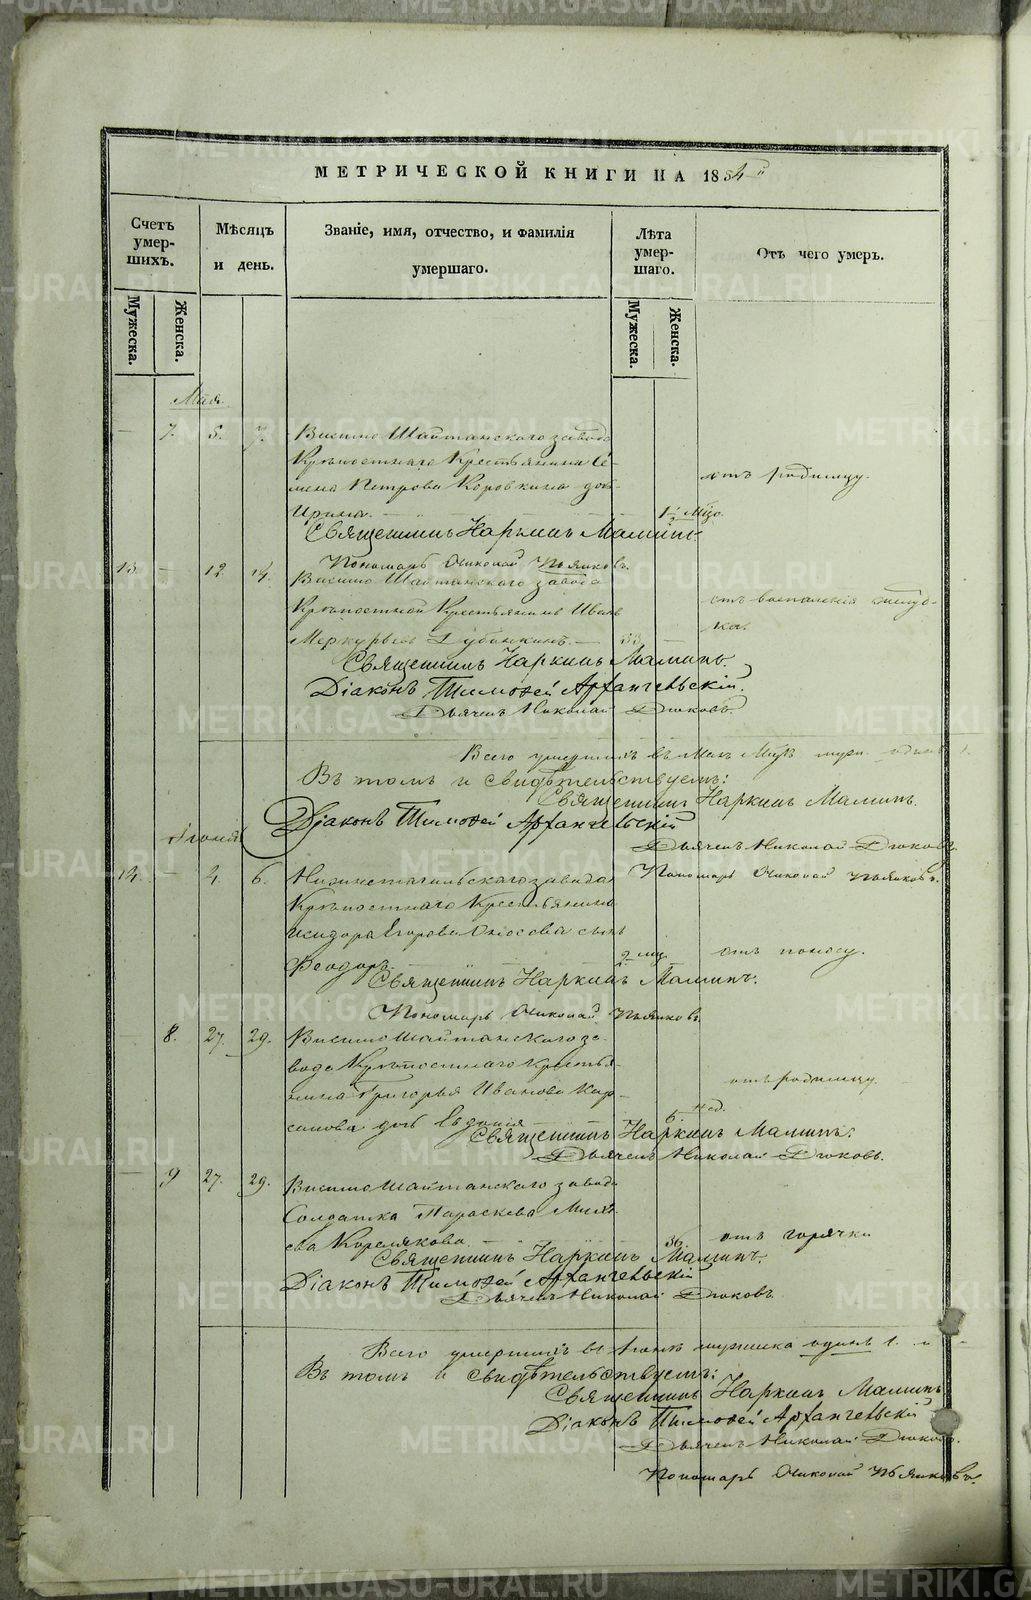 МЕТРИЧЕСКОЙ КНИГИ НА 1854 й
Счетъ умершихъ.
Мѣсяцъ и день.
Званіе, имя, отчество, и фамилія умершаго.
Лѣта умершаго.
Отъ чего умеръ.
Мужеска.
Женска.
Мужеска.
Женска.
Мая
— 7. 5. 7. Висимо Шайтанскаго завода
Крѣпостнаго Крестьянина Се-
мена Петрова Коровкина дочь
отъ родимцу.
Ирина. 1½ Мѣс.
Священникъ Наркиссъ Маминъ
Пономарь Николай Пьянковъ.
13. — 12. 14. Висимо Шайтанскаго завода
Крѣпостной Крестьянинъ Иванъ
отъ воспаленія желуд-
ка.
Меркурьевъ Губанкинъ. — 33. —
Священникъ Наркиссъ Маминъ.
Діаконъ Тимоѳей Архангельскій.
Дьячекъ Николай Дюковъ.
Всего умершихъ въ Маѣ
Въ томъ и свидѣтельствуемъ:
Священникъ Наркиссъ Маминъ.
Діаконъ Тимоѳей Архангельскій
Дьячекъ Николай Дюковъ
Пономарь Николай Пьянковъ.
Іюня
14. — 4. 6. Нижнетагильскаго завода
Крѣпостнаго Крестьянина
Исидора Егорова сынъ
Ѳеодоръ 2 мѣс.
отъ поносу.
Священникъ Наркиссъ Маминъ.
Пономарь Николай Пьянковъ
— 8. 27. 29. Висимо Шайтанскаго за-
вода Крѣпостнаго Крестья-
нина Григорья Иванова
отъ родимцу.
дочь Евдокія 6 нед.
Священникъ Наркиссъ Маминъ.
Дьячекъ Николай Дюковъ.
— 9 27. 29. Висимо Шайтанскаго завода
Солдатка Параскева
ева Корелякова 36.
отъ горячки
Священникъ Наркиссъ Маминъ.
Діаконъ Тимоѳей Архангельскій
Дьячекъ Николай Дюковъ
Всего умершихъ въ Іюнѣ мужеска одинъ 1.
Въ томъ и свидѣтельствуемъ:
Священникъ Наркиссъ Маминъ
Діаконъ Тимоѳей Архангельскій
Дьячекъ Николай Дюковъ.
Пономарь Николай Пьянковъ.
METRIKI.GASO-URAL.RU